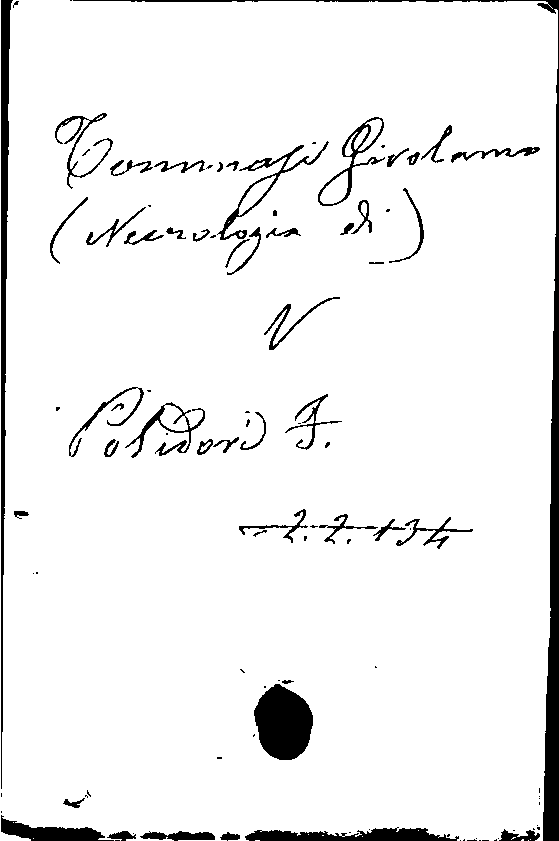 Tommasi Girolamo
(Necrologia di)
V
Polidori F.
2.2.134